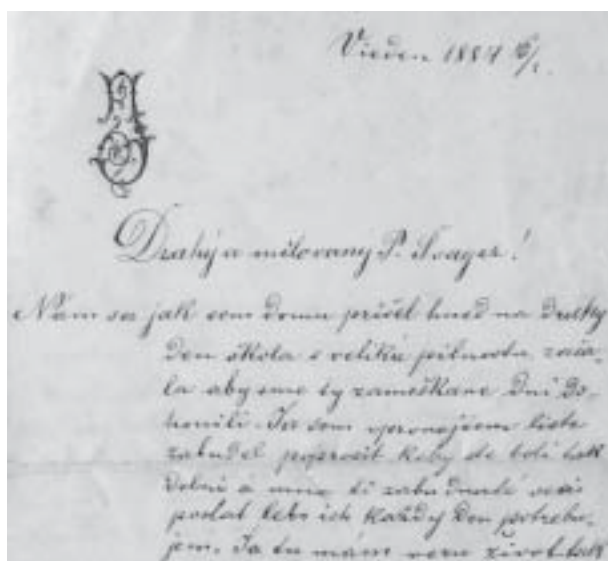 Viedeň 1884 16/1.
Drahý a milovaný P. Svager!
Nám sa jak som domu prišel hned na druhý
den škola s velikú pilnostu zača-
la aby sme ty zameškane dni do-
honili. Ja som v liste
zabudel poprosit keby ste boli tak
dobrí a mne ti veci
poslat lebo ich každý den potrebu-
jem. Ja tu mám veru život tak